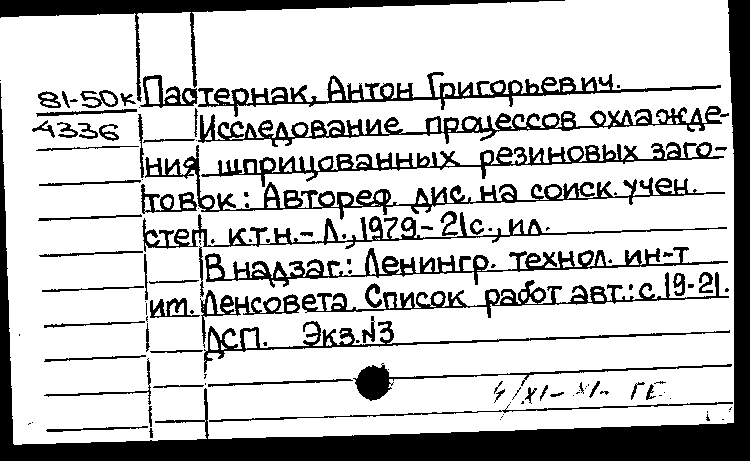 81-50к Пастернак, Антон Григорьевич.
4336 Исследование процессов охлажде-
ния шприцованных резиновых заго-
товок: Автореф. дис. на соиск. учен.
степ. к.т.н. - Л., 1979. - 21с., ил.
В надзаг.: Ленингр. технол. ин-т
им. Ленсовета. Список работ авт.: с.19-21.
ДСП. Экз.№3